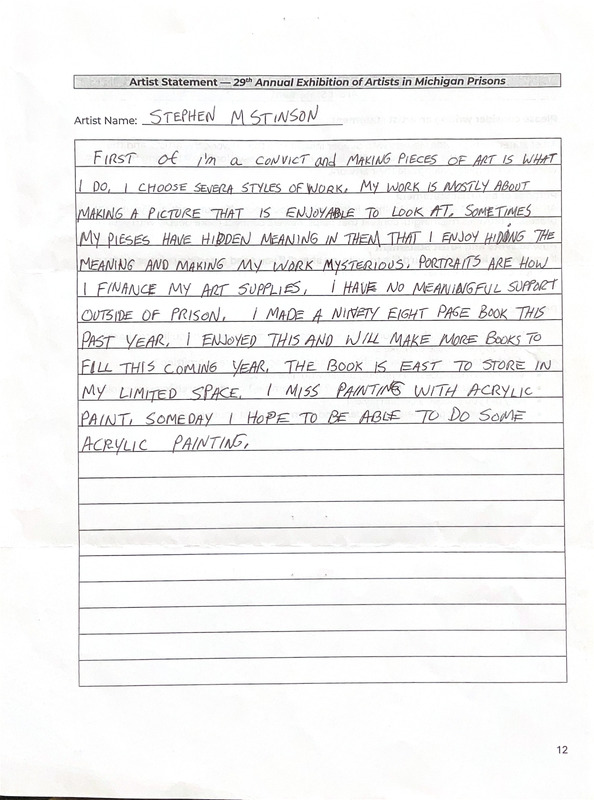 Artist Statement — 29th Annual Exhibition of Artists in Michigan Prisons
Artist Name: STEPHEN M STINSON
FIRST of i'm a CONVICT and MAKING PIECES OF ART IS WHAT
I DO. I CHOOSE SEVERA STYLES OF WORK. MY WORK IS MOSTLY ABOUT
MAKING A PICTURE THAT IS ENJOYABLE TO LOOK AT. SOMETIMES
MY PIESES HAVE HIDDEN MEANING IN THEM THAT I ENJOY HIDING THE
MEANING AND MAKING MY WORK MYSTERIOUS. PORTRAITS ARE HOW
I FINANCE MY ART SUPPLIES. I HAVE NO MEANINGFUL SUPPORT
OUTSIDE OF PRISON. I MADE A NINETY EIGHT PAGE BOOK THIS
PAST YEAR. I ENJOYED THIS AND WILL MAKE MORE BOOKS TO
FILL THIS COMING YEAR. THE BOOK IS EAST TO STORE IN
MY LIMITED SPACE. I MISS PAINTING WITH ACRYLIC
PAINT. SOMEDAY I HOPE TO BE ABLE TO DO SOME
ACRYLIC PAINTING.
12